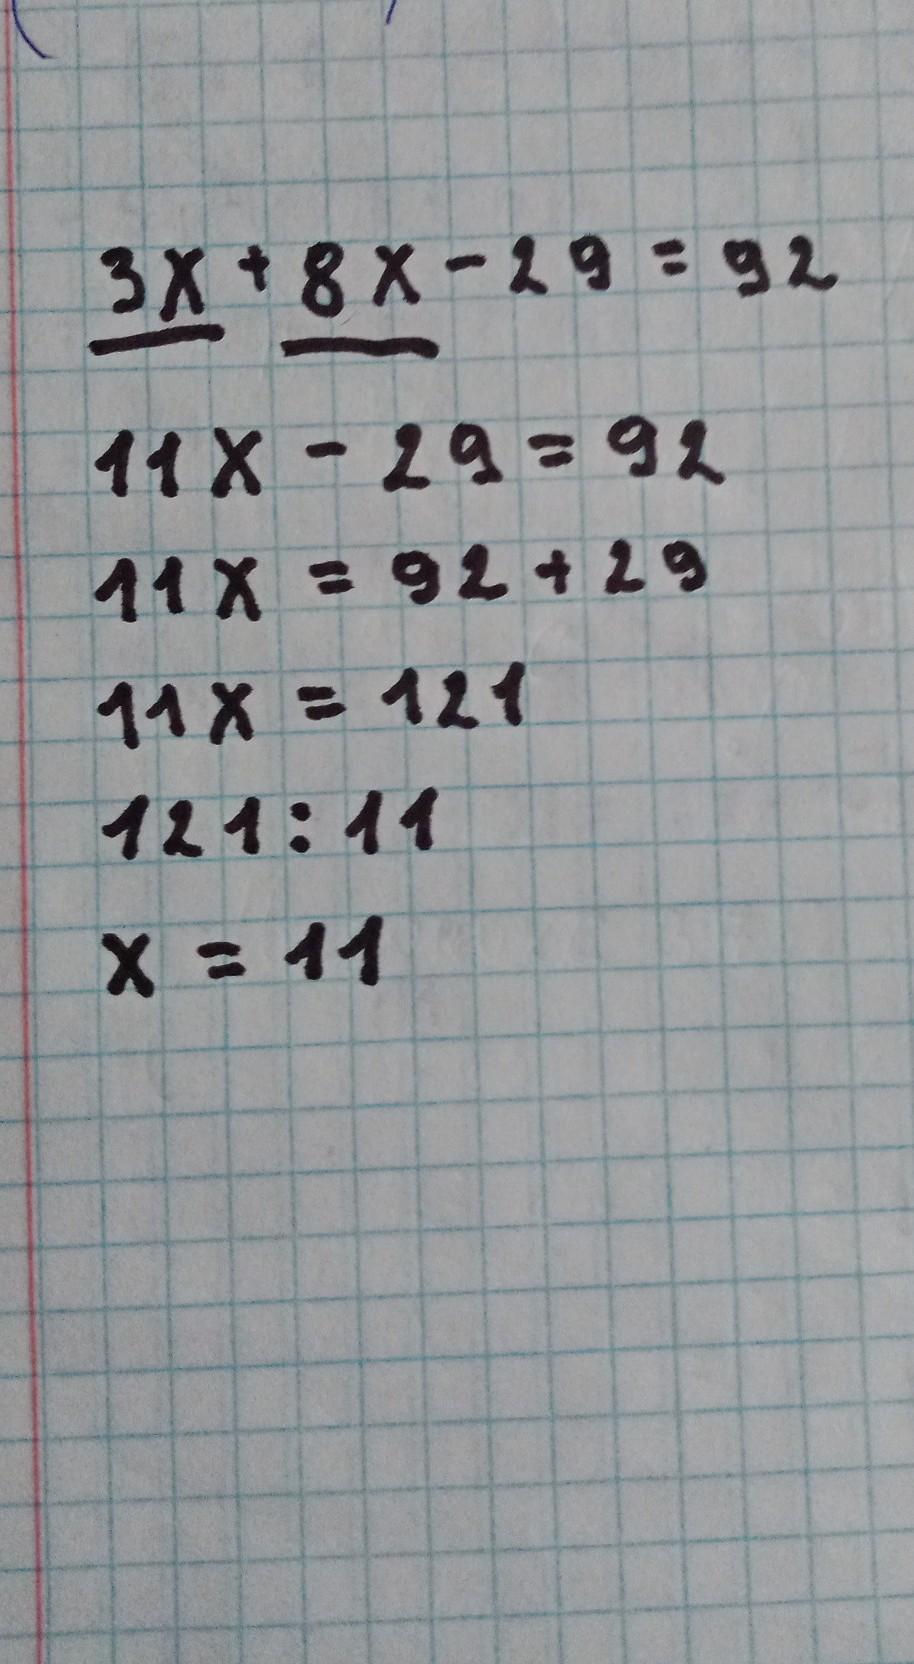 3x + 8x - 29 = 92
11x - 29 = 92
11x = 92 + 29
11x = 121
121 : 11
x = 11